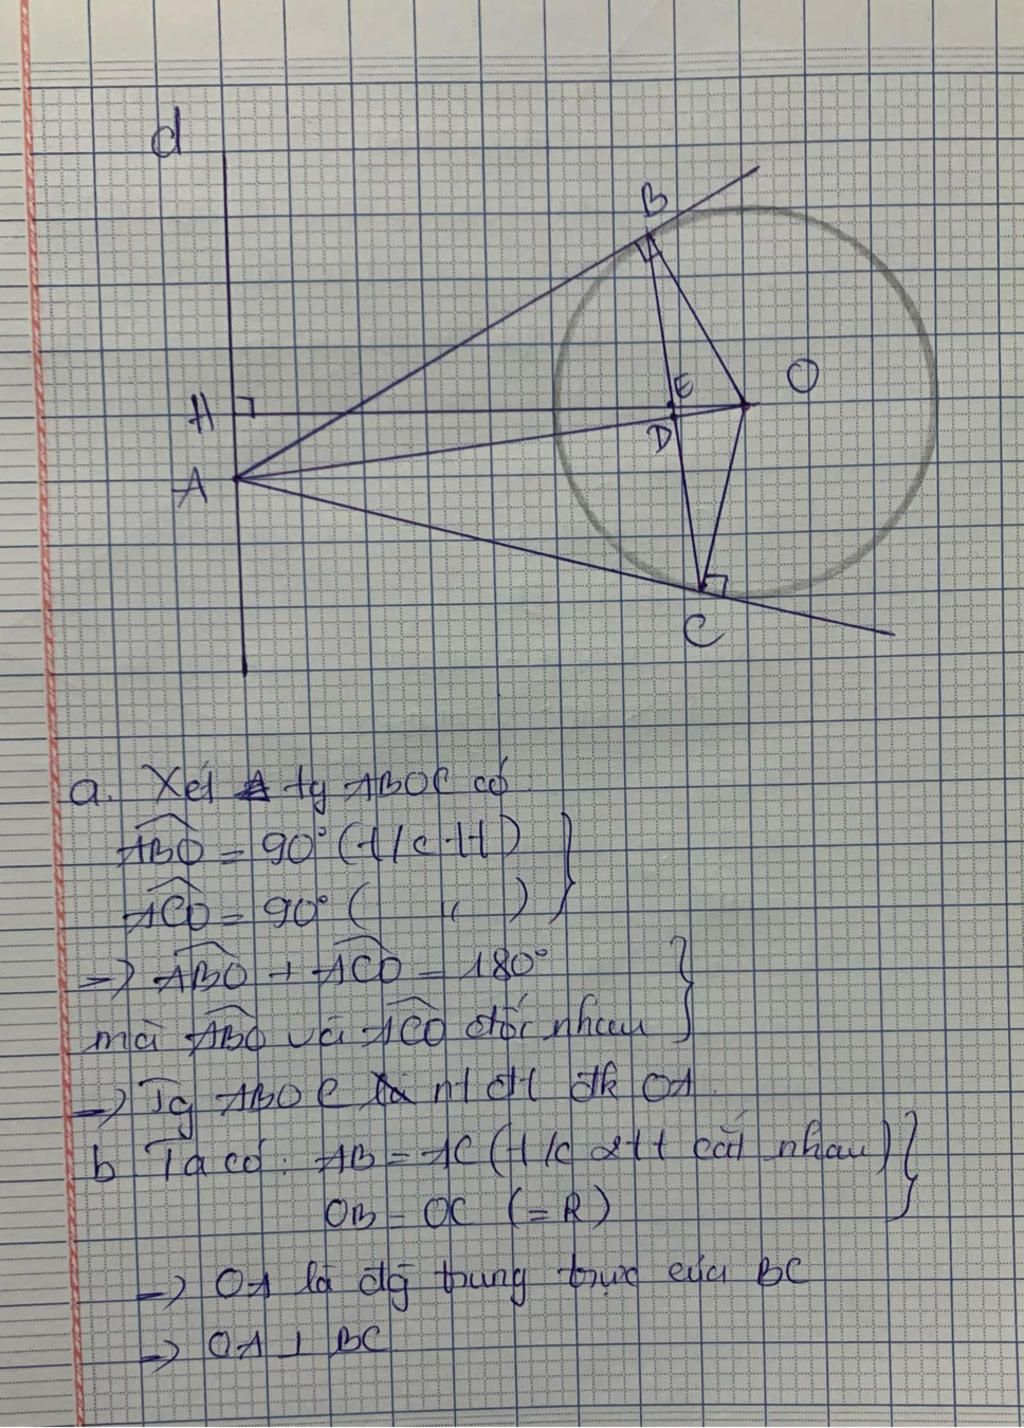 d
B
E
O
H
D
A
C
a. Xét tg ABOC có
ABO = 90° (t/c tt)
ACO = 90° ( " )
→ ABO + ACO = 180°
mà ABO và ACO đối nhau
→ Tg ABOC nt đt đk OA.
b Ta có: AB = AC (t/c 2tt cắt nhau)
OB = OC (=R)
→ OA là đg trung trực của BC
→ OA ⊥ BC